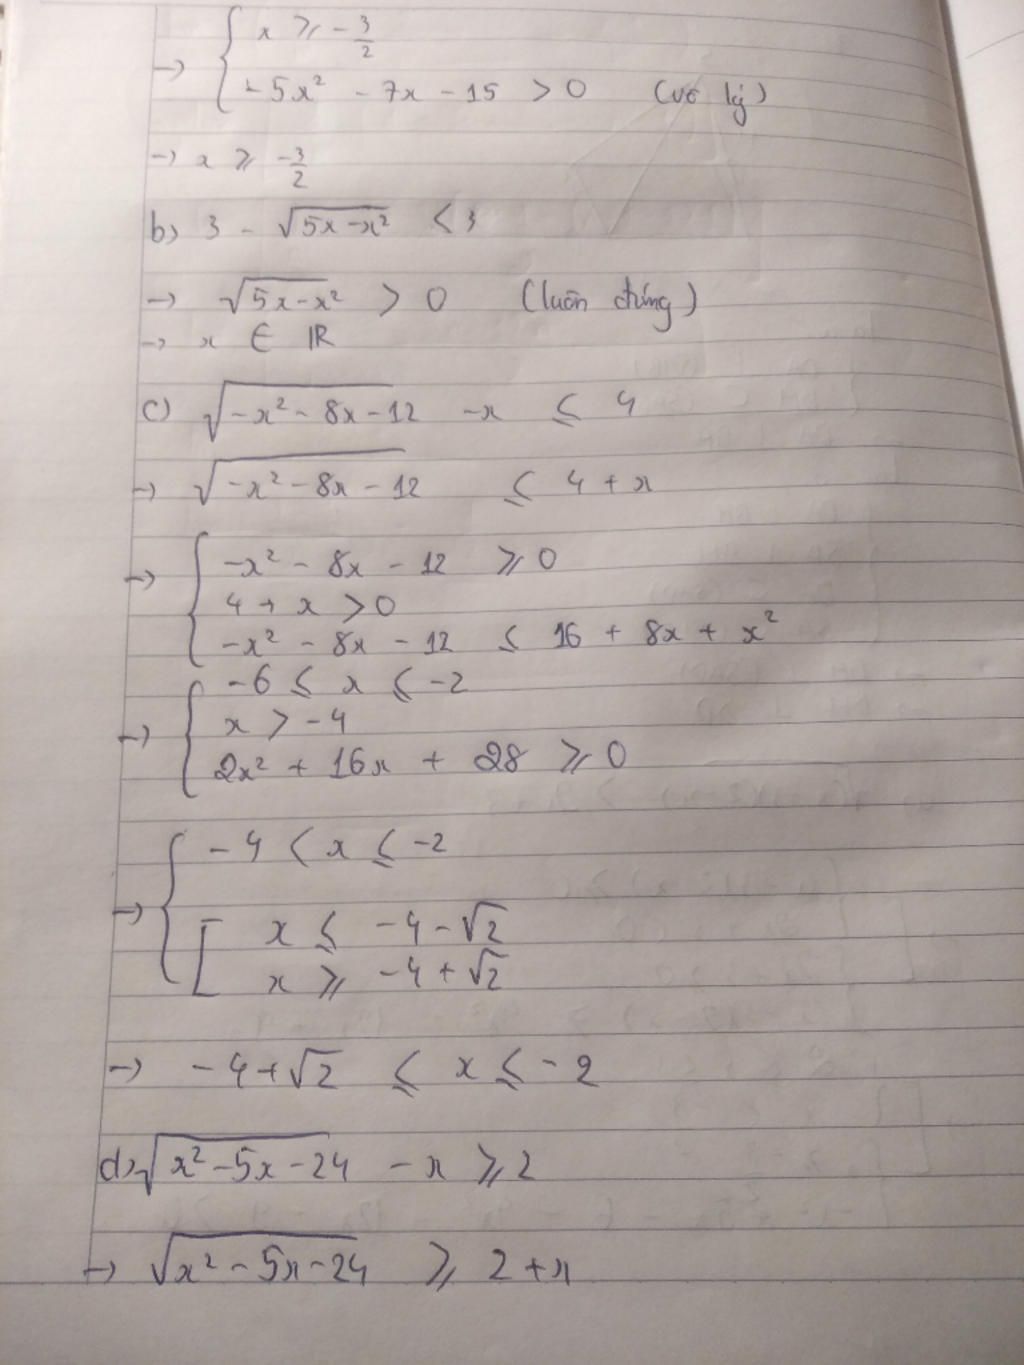 → { x ⩾ -3/2
- 5x² - 7x - 15 > 0 (vô lý)
→ x ⩾ -3/2
b) 3 - √(5x-x²) < 3
→ √(5x-x²) > 0 (luôn đúng)
→ x ∈ ℝ
c) √(-x² - 8x - 12) - x ≤ 4
→ √(-x² - 8x - 12) ≤ 4 + x
→ { -x² - 8x - 12 ⩾ 0
4 + x > 0
-x² - 8x - 12 ≤ 16 + 8x + x²
→ { -6 ≤ x ≤ -2
x > -4
2x² + 16x + 28 ⩾ 0
→ { -4 < x ≤ -2
[ x ≤ -4 - √2
x ⩾ -4 + √2
→ -4 + √2 ≤ x ≤ -2
d) √(x² - 5x - 24) - x ⩾ 2
→ √(x² - 5x - 24) ⩾ 2 + x